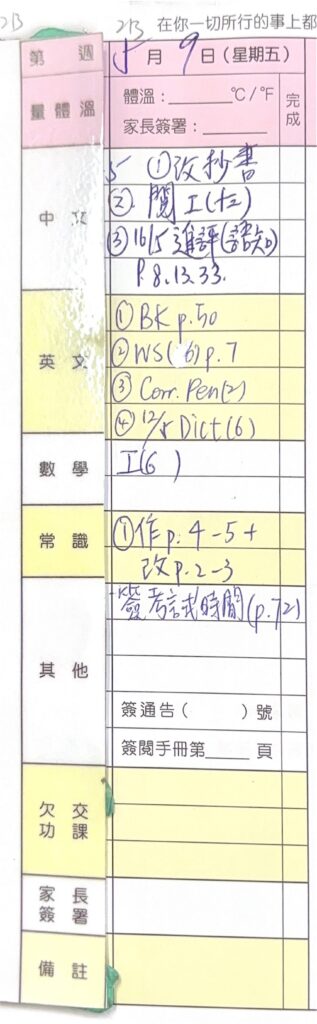 2B 2B 在你一切所行的事上都
第 週 5 月 9 日 (星期五)
量體溫 體溫:________℃/℉ 完成
家長簽署:________
中文 ①改抄書
② 閱工(十二)
③ 16/5 進評(語知)
P.8.13.33.
英文 ① BK p.50
② WS(6) p.7
③ Corr. Pen(2)
④ 12/5 Dict(6)
數學 工(6)
常識 ①作p.4-5+
改p.2-3
其他 簽考試時間(p.72)
簽通告( )號
簽閱手冊第____頁
欠交功課
家長簽署
備註